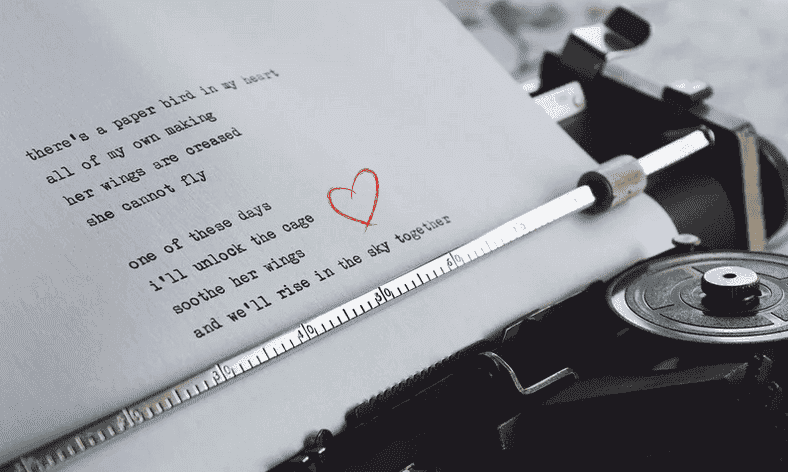 there's a paper bird in my heart
all of my own making
her wings are creased
she cannot fly
one of these days
i'll unlock the cage
soothe her wings
and we'll rise in the sky together
20 30 40 50 60